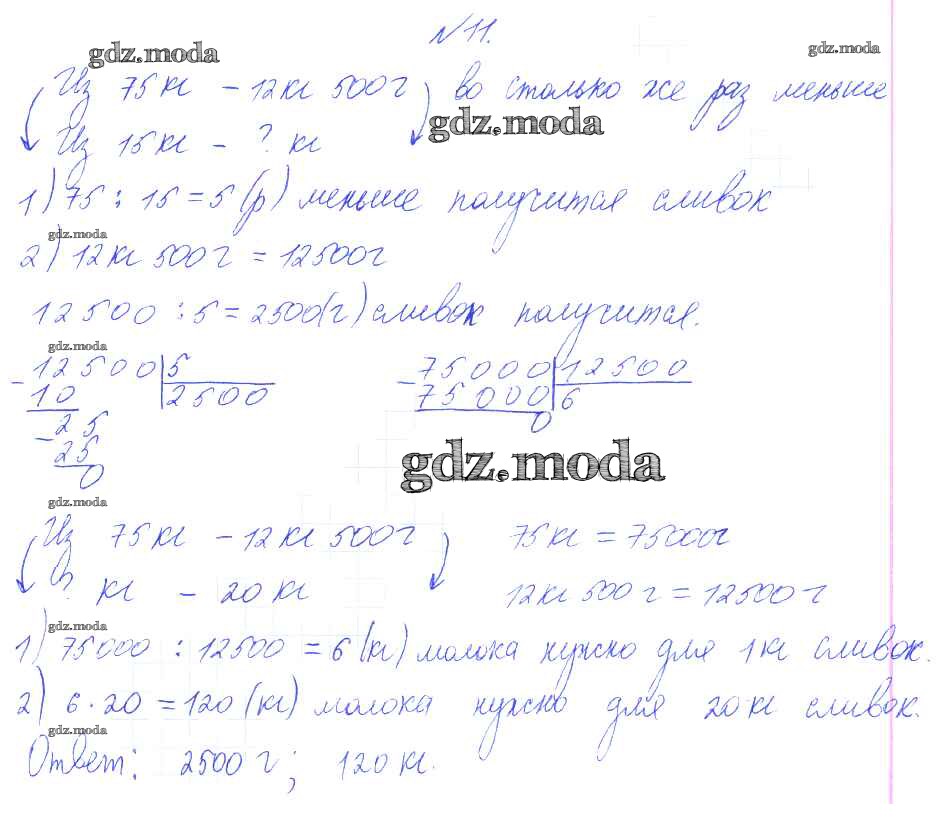 № 11.
gdz.moda gdz.moda
Из 75 кг – 12 кг 500 г во столько же раз меньше
gdz.moda
Из 15 кг – ? кг
1) 75 : 15 = 5 (р) меньше получится сливок
gdz.moda
2) 12 кг 500 г = 12500 г
12500 : 5 = 2500 (г) сливок получится.
gdz.moda
– 12500 | 5 – 75000 | 12500
10 | 2500 75000 | 6
– 25 0
25
0
gdz.moda
gdz.moda
Из 75 кг – 12 кг 500 г 75 кг = 75000 г
? кг – 20 кг 12 кг 500 г = 12500 г
gdz.moda
1) 75000 : 12500 = 6 (кг) молока нужно для 1 кг сливок.
gdz.moda
2) 6 · 20 = 120 (кг) молока нужно для 20 кг сливок.
gdz.moda
Ответ: 2500 г; 120 кг.